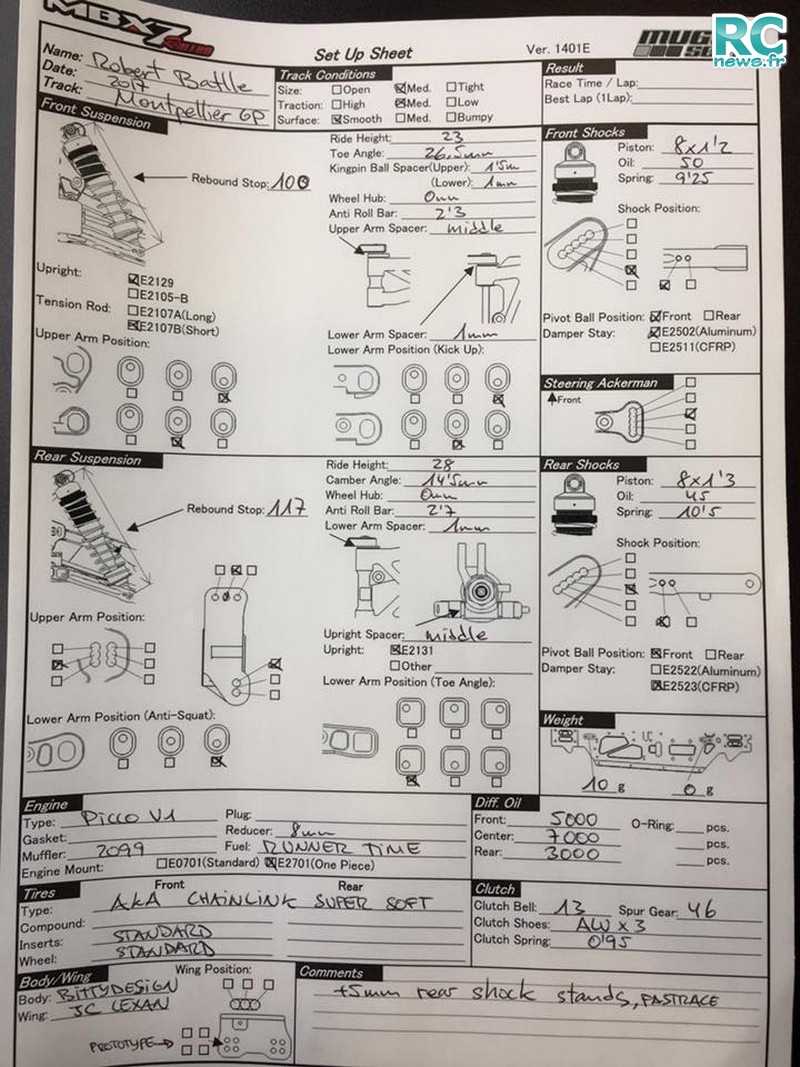 MBX7 NITRO
MUGEN SEIKI
RC
news.fr
Set Up Sheet
Ver. 1401E
Name: Robert Batlle
Date: 2017
Track: Montpellier GP
Track Conditions
Size: Open Med. Tight
Traction: High Med. Low
Surface: Smooth Med. Bumpy
Result
Race Time / Lap:
Best Lap (1Lap):
Front Suspension
Rebound Stop: 100
Upright:
E2129
E2105-B
Tension Rod:
E2107A(Long)
E2107B(Short)
Upper Arm Position:
Ride Height: 23
Toe Angle: 26,5mm
Kingpin Ball Spacer(Upper): 1'5m
(Lower): 1mm
Wheel Hub: 0mm
Anti Roll Bar: 2'3
Upper Arm Spacer: middle
Lower Arm Spacer: 1mm
Lower Arm Position (Kick Up):
Front Shocks
Piston: 8x1'2
Oil: 50
Spring: 9'25
Shock Position:
Pivot Ball Position: Front Rear
Damper Stay: E2502(Aluminum)
E2511(CFRP)
Steering Ackerman
Front
Rear Suspension
Rebound Stop: 117
Upper Arm Position:
Lower Arm Position (Anti-Squat)
Ride Height: 28
Camber Angle: 14'5mm
Wheel Hub: 0mm
Anti Roll Bar: 2'7
Lower Arm Spacer: 1mm
Upright Spacer: middle
Upright: E2131
Other
Lower Arm Position (Toe Angle):
Rear Shocks
Piston: 8x1'3
Oil: 45
Spring: 10'5
Shock Position:
Pivot Ball Position: Front Rear
Damper Stay: E2522(Aluminum)
E2523(CFRP)
Weight
10 g 0 g
Engine
Type: Picco V1
Gasket:
Muffler: 2099
Engine Mount: E0701(Standard) E2701(One Piece)
Plug:
Reducer: 8mm
Fuel: RUNNER TIME
Diff. Oil
Front: 5000
Center: 7000
Rear: 3000
O-Ring: pcs.
pcs.
pcs.
Tires
Front Rear
Type: AKA CHAINLINK SUPER SOFT
Compound:
Inserts: STANDARD
Wheel: STANDARD
Clutch
Clutch Bell: 13 Spur Gear: 46
Clutch Shoes: ALU x 3
Clutch Spring: 0'95
Body/Wing
Body: BITTYDESIGN
Wing: JC LEXAN
Wing Position:
PROTOTYPE
Comments
+5mm rear shock stands, FASTRACE